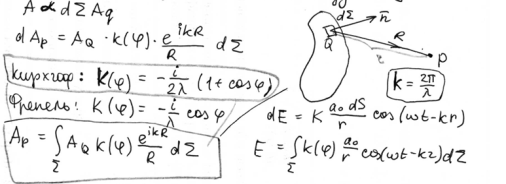 A ∝ dΣ A_Q
dA_p = A_Q · k(φ) · e^{ikR}/R dΣ
Кирхгоф: K(φ) = -i/2λ (1 + cosφ)
Френель: K(φ) = -i/λ cosφ
A_p = ∫_Σ A_Q K(φ) e^{ikR}/R dΣ
dΣ n̄
Q R
r P
k = 2π/λ
dE = K a₀dS/r cos(ωt-kr)
E = ∫_Σ k(φ) a₀/r cos(ωt-kr)dΣ